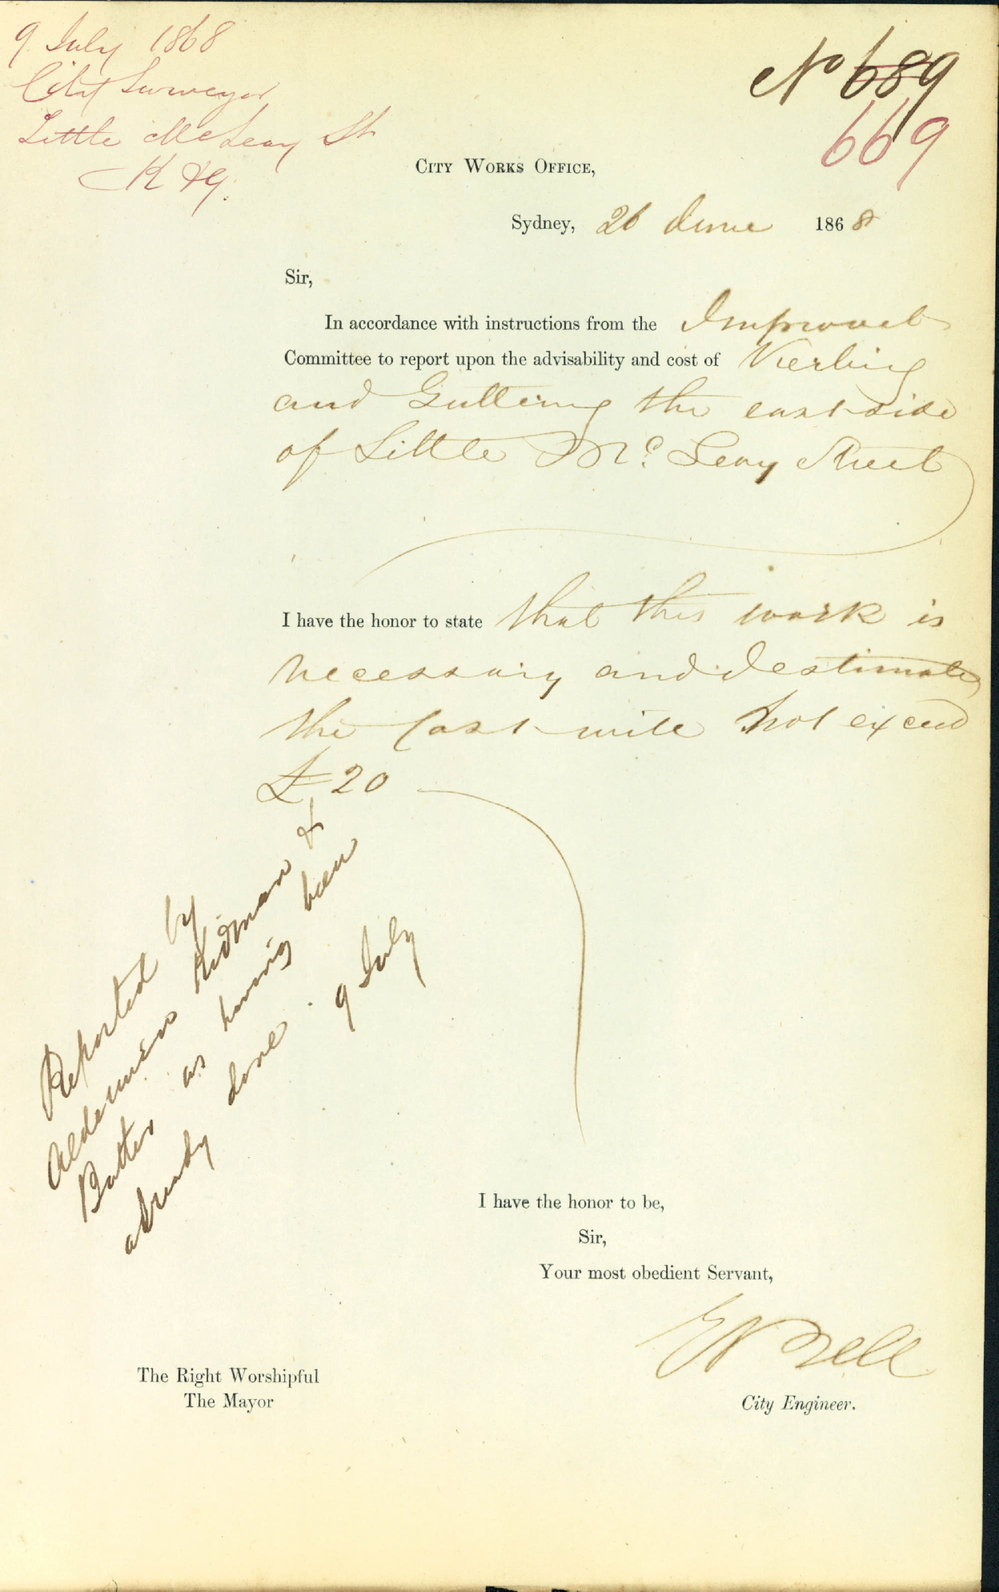 9 July 1868
City Surveyor
Little McLeay St
K & G.
No 689
669
CITY WORKS OFFICE,
Sydney, 26 June 1868
Sir,
In accordance with instructions from the Improvet
Committee to report upon the advisability and cost of Kerbing
and Guttering the east side
of Little Mc. Leay Street
I have the honor to state that this work is
necessary and I estimate
the cost will not exceed
£20
Reported by
Aldermen Kidman &
Butter as having been
already done. 9 July
I have the honor to be,
Sir,
Your most obedient Servant,
E Bell
City Engineer.
The Right Worshipful
The Mayor